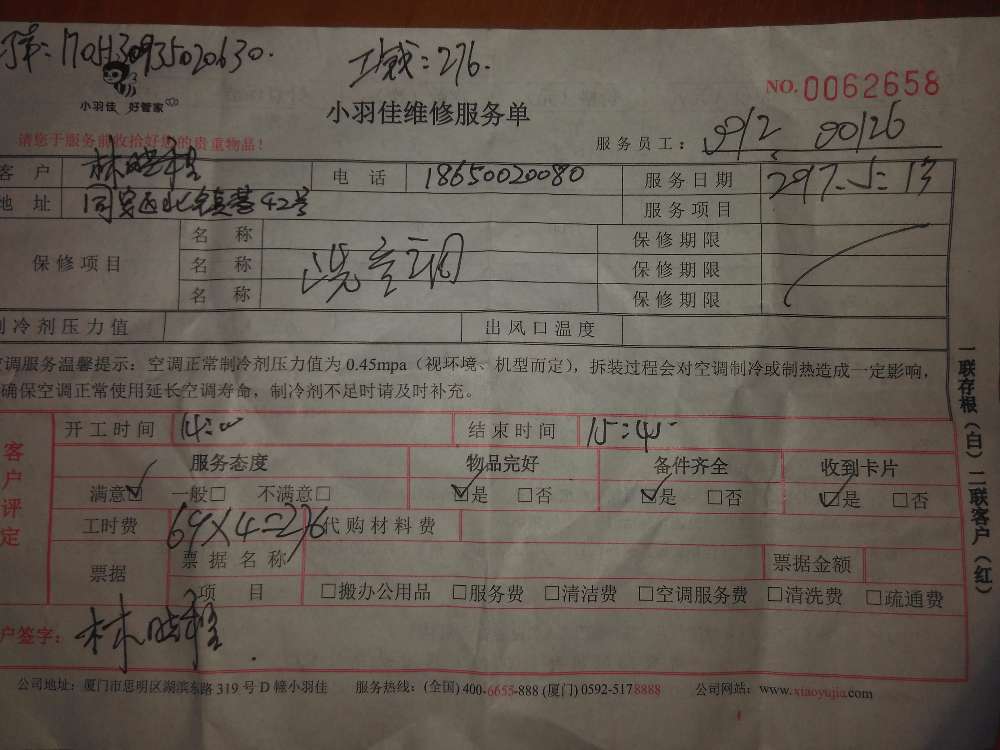 1705130935020630.
工钱:276.
小羽佳 好管家
NO.0062658
小羽佳维修服务单
请您于服务前收拾好您的贵重物品!
服务员工: 992、00126
客 户 林晓程 电 话 18650020080 服务日期 2917.5.13
地 址 同安区 42号 服务项目
保修项目 名 称 洗空调 保修期限
名 称 保修期限
名 称 保修期限
制冷剂压力值 出风口温度
空调服务温馨提示:空调正常制冷剂压力值为0.45mpa(视环境、机型而定),拆装过程会对空调制冷或制热造成一定影响,
确保空调正常使用延长空调寿命,制冷剂不足时请及时补充。
客户评定
开工时间 14: 结束时间 15:45
服务态度 物品完好 备件齐全 收到卡片
满意☑ 一般□ 不满意□ ☑是 □否 ☑是 □否 ☑是 □否
工时费 69×4=276 代购材料费
票据 票据名称 票据金额
项 目 □搬办公用品 □服务费 □清洁费 □空调服务费 □清洗费 □疏通费
户签字: 林晓程
公司地址:厦门市思明区湖滨东路319号D幢小羽佳 服务热线:(全国)400-6655-888(厦门)0592-5178888 公司网站:www.xiaoyujia.com
一联存根(白)二联客户(红)